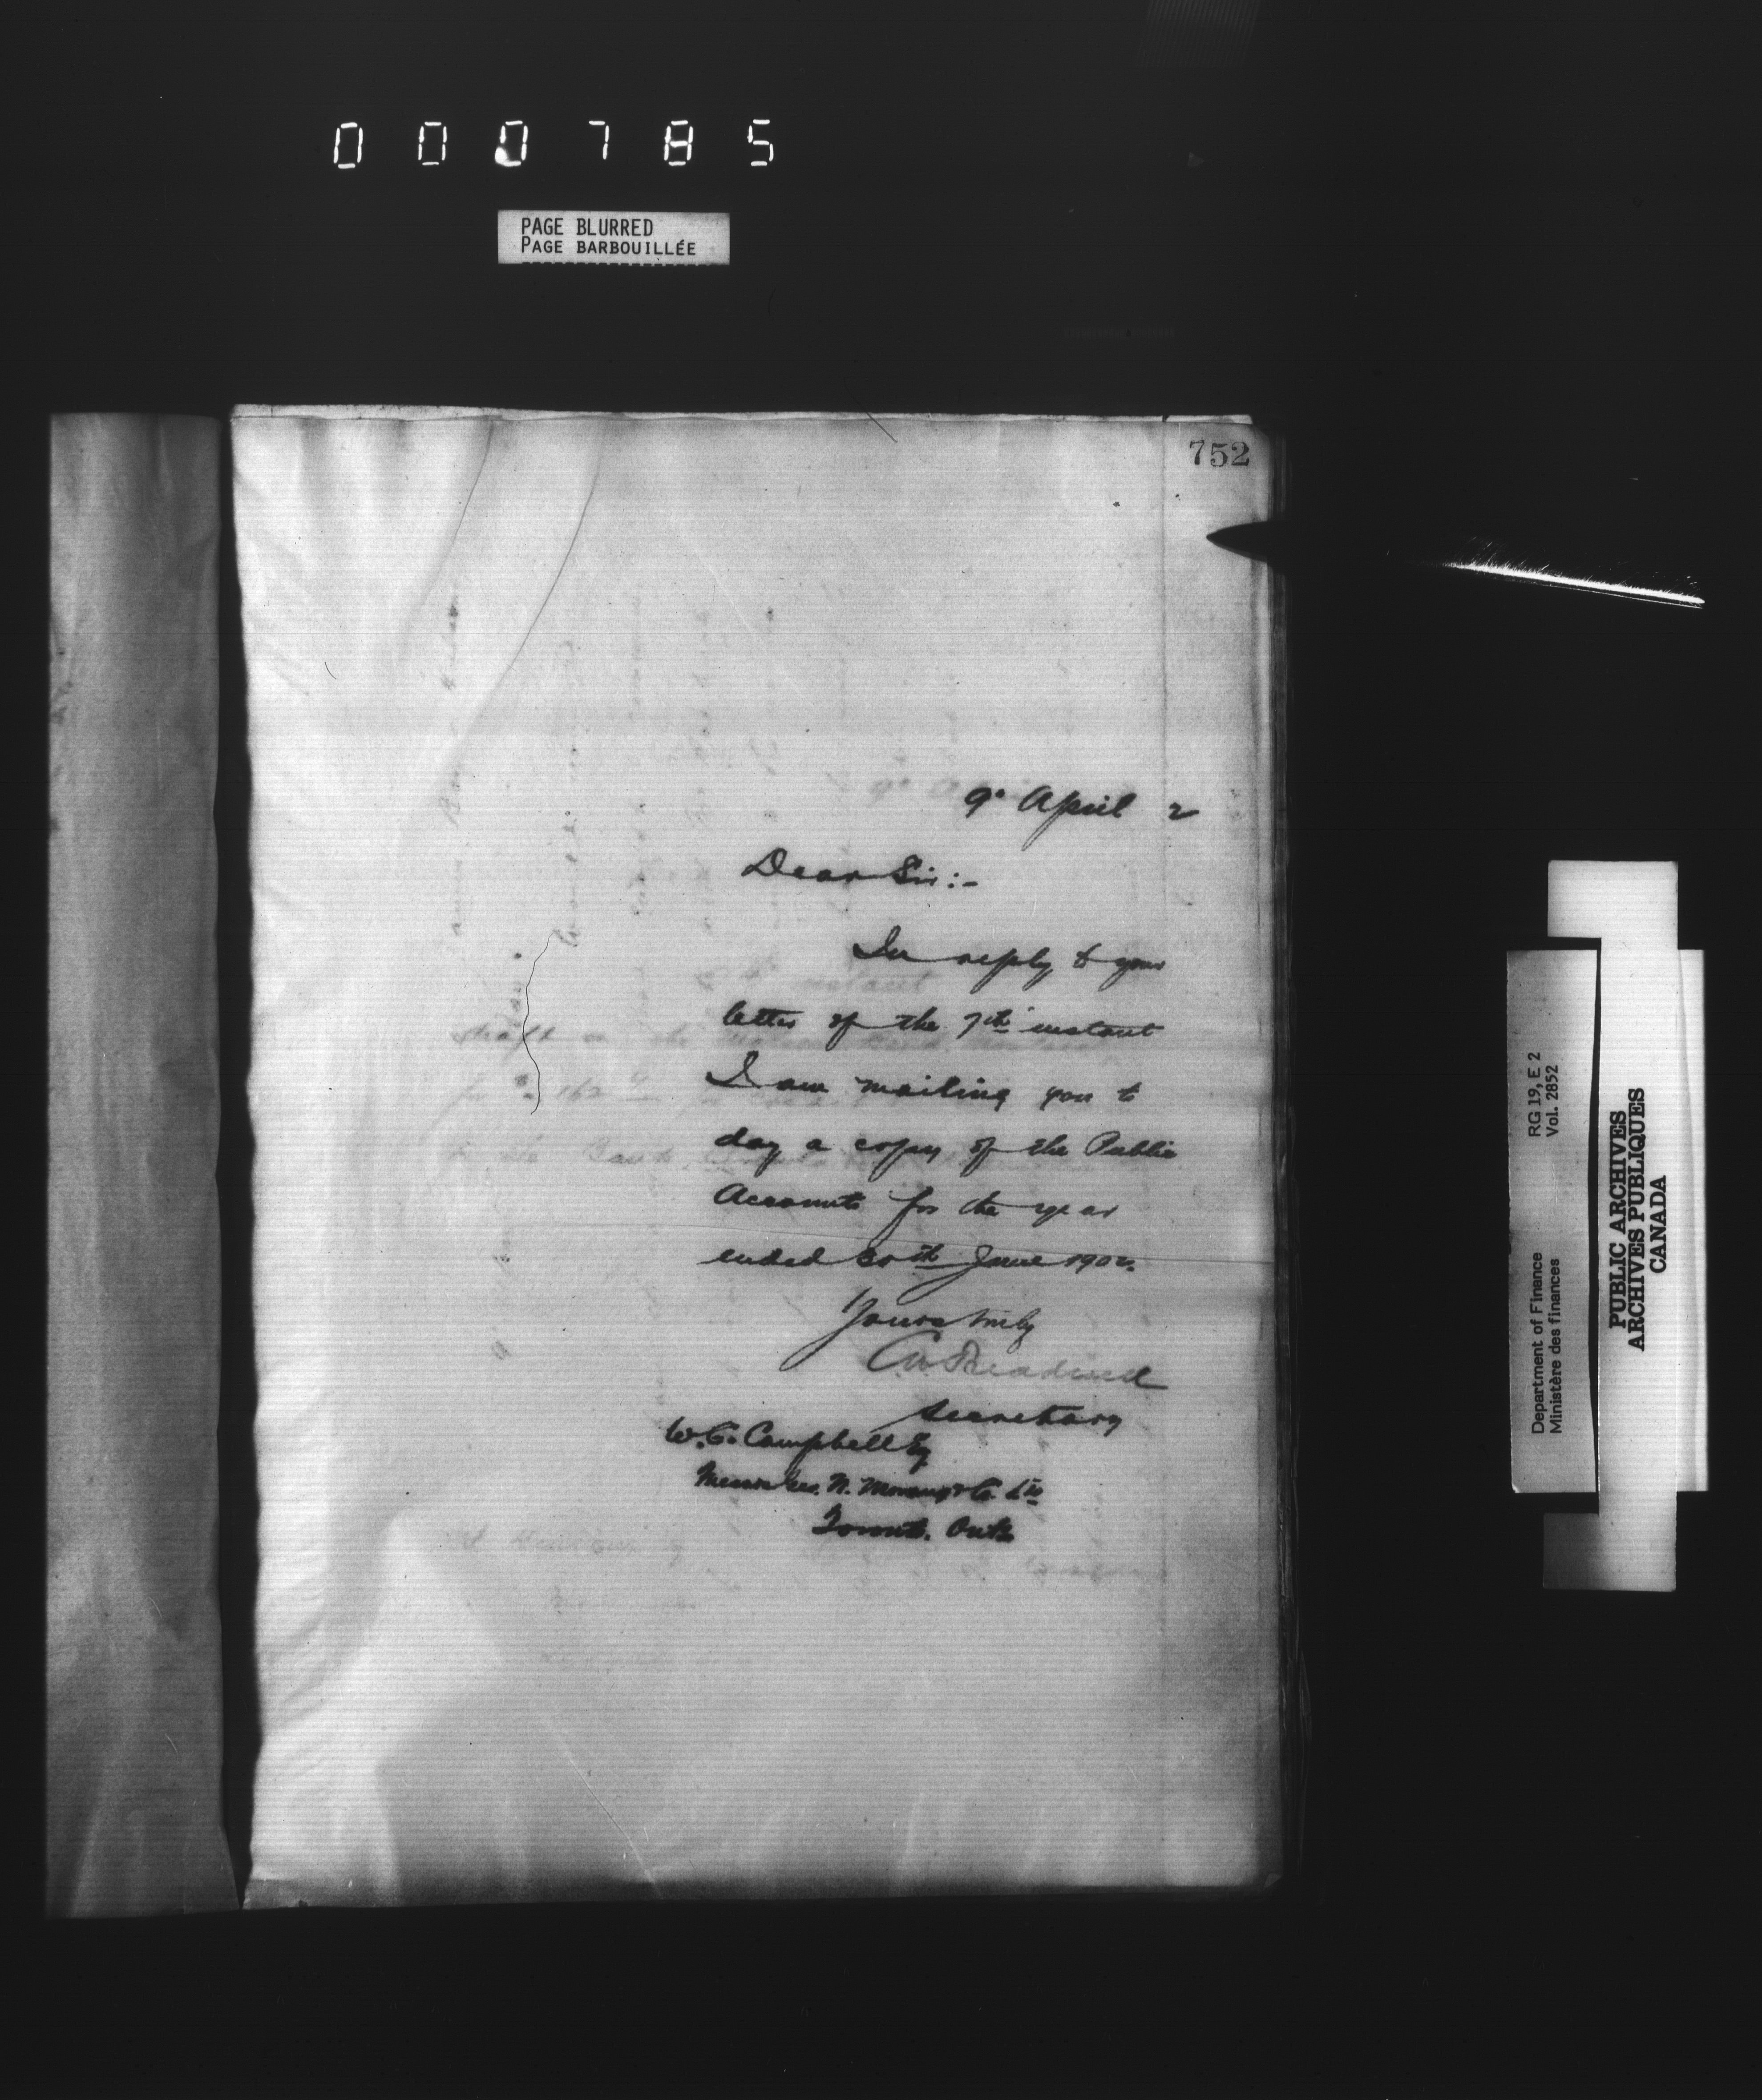 000785
PAGE BLURRED
PAGE BARBOUILLÉE
752
9th April 2
Dear Sir:-
In reply to your
letter of the 7th instant
I am mailing you to
day a copy of the Public
Accounts for the year
ended 30th June 190
Yours truly
Secretary
W.C. Campbell Esq
Messrs Geo. N. Morang & Co. Ltd
Toronto. Ont
RG 19, E 2
Vol. 2852
Department of Finance
Ministère des finances
PUBLIC ARCHIVES
ARCHIVES PUBLIQUES
CANADA